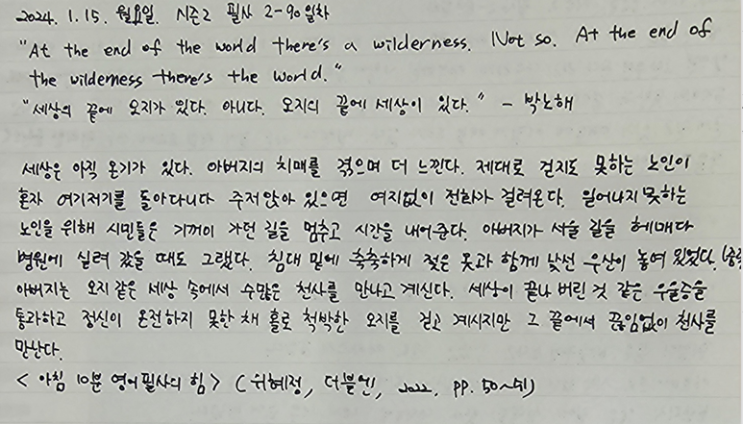 2024. 1. 15. 월요일. 시즌2 필사 2-90일차
"At the end of the world there's a wilderness. Not so. At the end of
the wilderness there's the world."
"세상의 끝에 오지가 있다. 아니다. 오지의 끝에 세상이 있다." - 박노해
세상은 아직 온기가 있다. 아버지의 치매를 겪으며 더 느낀다. 제대로 걷지도 못하는 노인이
혼자 여기저기를 돌아다니다 주저앉아 있으면 여지없이 전화가 걸려온다. 일어나지 못하는
노인을 위해 시민들은 기꺼이 가던 길을 멈추고 시간을 내어준다. 아버지가 서울 길을 헤매다
병원에 실려 갔을 때도 그랬다. 침대 밑에 축축하게 젖은 옷과 함께 낯선 우산이 놓여 있었다. (중략
아버지는 오지 같은 세상 속에서 수많은 천사를 만나고 계신다. 세상이 끝나 버린 것 같은 우울증을
통과하고 정신이 온전하지 못한 채 홀로 척박한 오지를 걷고 계시지만 그 끝에서 끊임없이 천사를
만난다.
< 아침 10분 영어필사의 힘 > (위혜정, 더블엔, 2022, pp. 50~51)